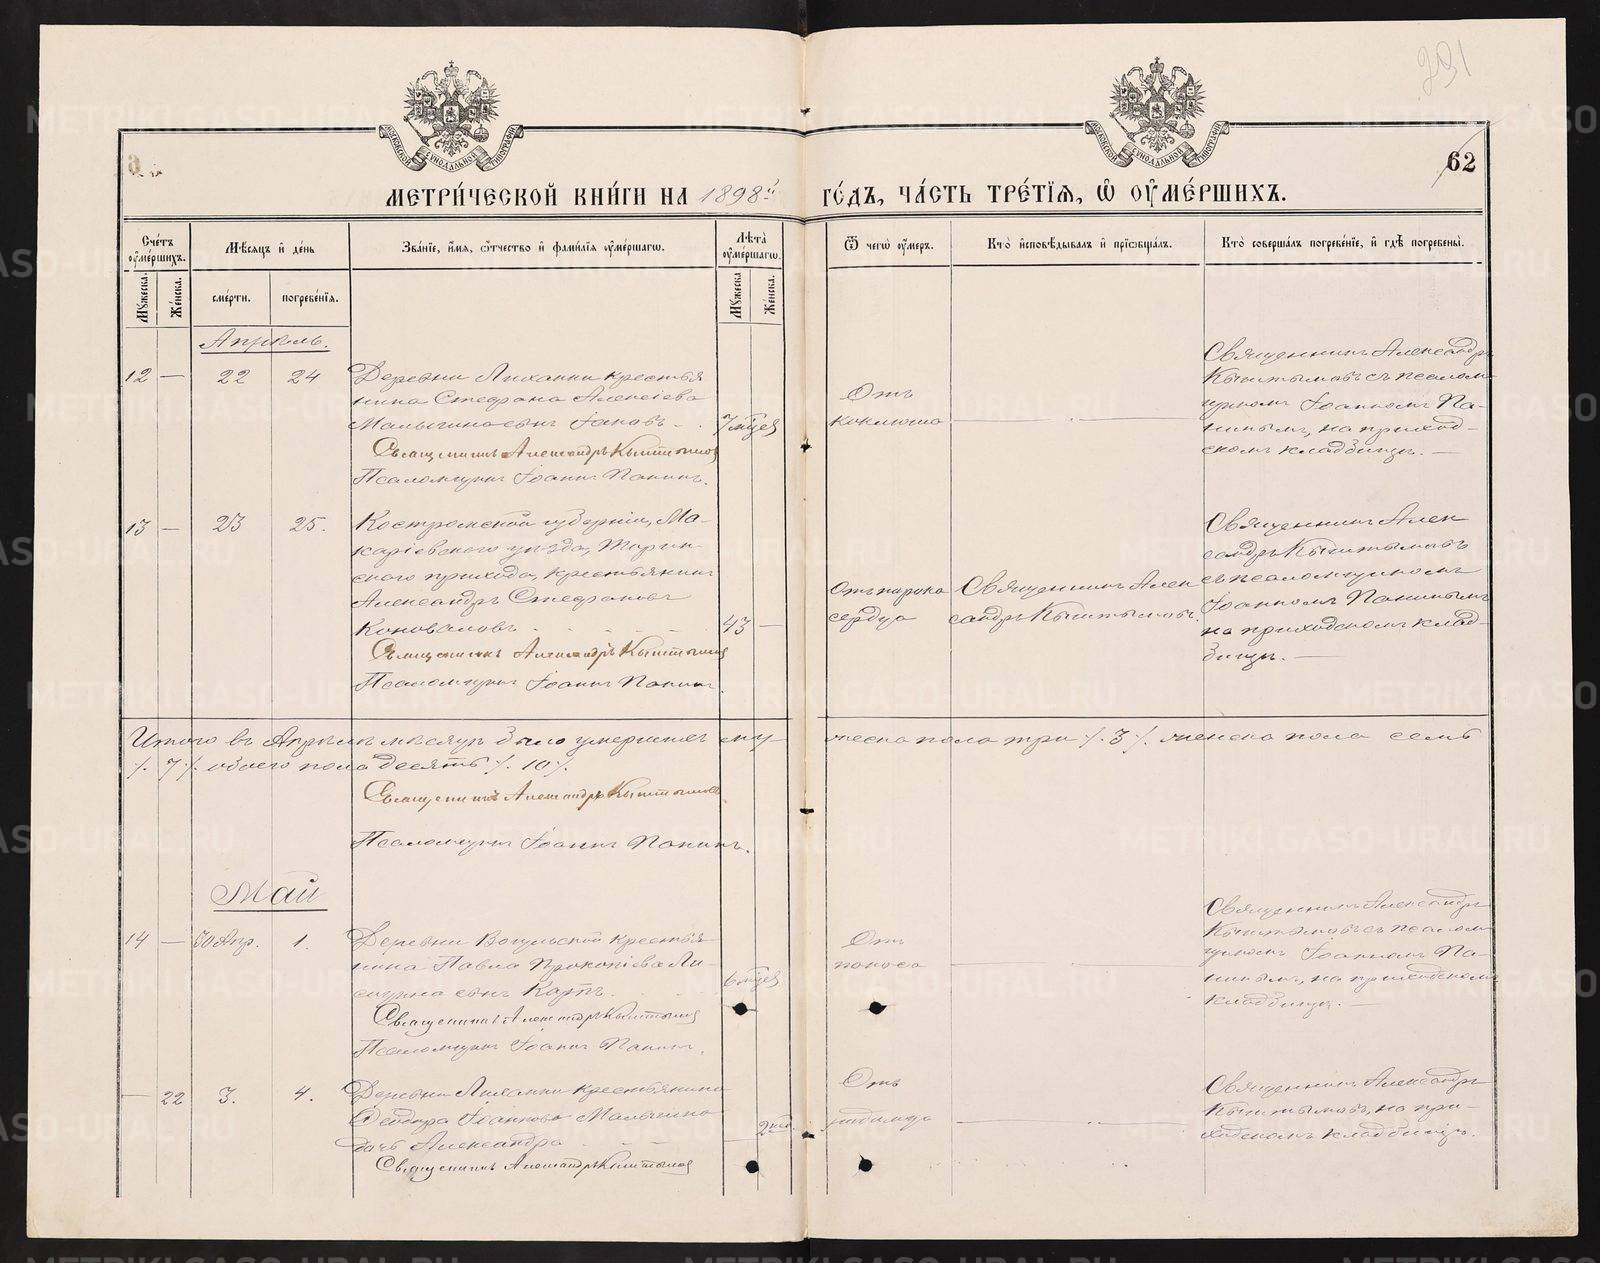 291
62
МОСКОВСКОЙ СѴНОДАЛЬНОЙ ТИПОГРАФІИ
МОСКОВСКОЙ СѴНОДАЛЬНОЙ ТИПОГРАФІИ
МЕТРИ́ЧЕСКОЙ КНИ́ГИ НА 1898й ГО́ДЪ, ЧА́СТЬ ТРЕ́ТІѦ, Ѡ ОУМЕ́РШИХЪ.
Сче́тъ оуме́ршихъ.
Мѣсяцъ и де́нь
Зва́ніе, и́мя, ѻ́тчество и фами́лія оуме́ршагѡ.
Лѣта̀ оуме́ршагѡ.
Ѿ чегѡ̀ оу́меръ.
Кто̀ исповѣ́дывалъ и приѡбща́лъ.
Кто̀ соверша́лъ погребе́ніе, и гдѣ̀ погребены̀.
Мꙋ́жеска.
Же́нска.
сме́рти.
погребе́нія.
Мꙋ́жеска
Же́нска.
Апрѣль.
12 — 22 24
Деревни Лиханки крестья
нина Стефана Алексіева
Малыгина сынъ Іаковъ
7 мѣсяц.
Священникъ Александръ Кыштымовъ
Псаломщикъ Іоаннъ Панинъ.
Отъ
коклюша
Священникъ Александръ
Кыштымовъ съ псалом-
щикомъ Іоанномъ Па-
нинымъ, на приход-
скомъ кладбищѣ. —
13 — 23 25.
Костромской губерніи, Ма-
каріевскаго уѣзда,
скаго прихода, крестьянинъ
Александръ Стефановъ
Коноваловъ
43 —
Священникъ Александръ Кыштымовъ
Псаломщикъ Іоаннъ Панинъ.
Отъ порока
сердца
Священникъ Алек
сандръ Кыштымовъ.
Священникъ Алек
сандръ Кыштымовъ
съ псаломщикомъ
Іоанномъ Панинымъ
на приходскомъ клад-
бищѣ. —
Итого въ Апрѣлѣ мѣсяцѣ было умершихъ му-
жеска пола три ·/. 3 ·/. женска пола семь
·/. 7 ·/. обоего пола десять ·/. 10 ·/.
Священникъ Александръ Кыштымовъ
Псаломщикъ Іоаннъ Панинъ.
Май
14 — 30 Апр. 1.
Деревни Вогульской крестья-
нина Павла Прокопіева Ли-
сицина сынъ Карпъ.
6 мѣсяц.
Священникъ Александръ Кыштымовъ
Псаломщикъ Іоаннъ Панинъ.
Отъ
поноса
Священникъ Александръ
Кыштымовъ съ псалом-
щикомъ Іоанномъ Па-
нинымъ, на приходскомъ
кладбищѣ. —
— 22 3. 4.
Деревни Лиханки крестьянина
Ѳеодора Іоаннова Малыгина
дочь Александра
2 нед.
Священникъ Александръ Кыштымовъ
Отъ
родимца
Священникъ Александръ
Кыштымовъ, на при-
ходскомъ кладбищѣ.
METRIKI.GASO-URAL.RU